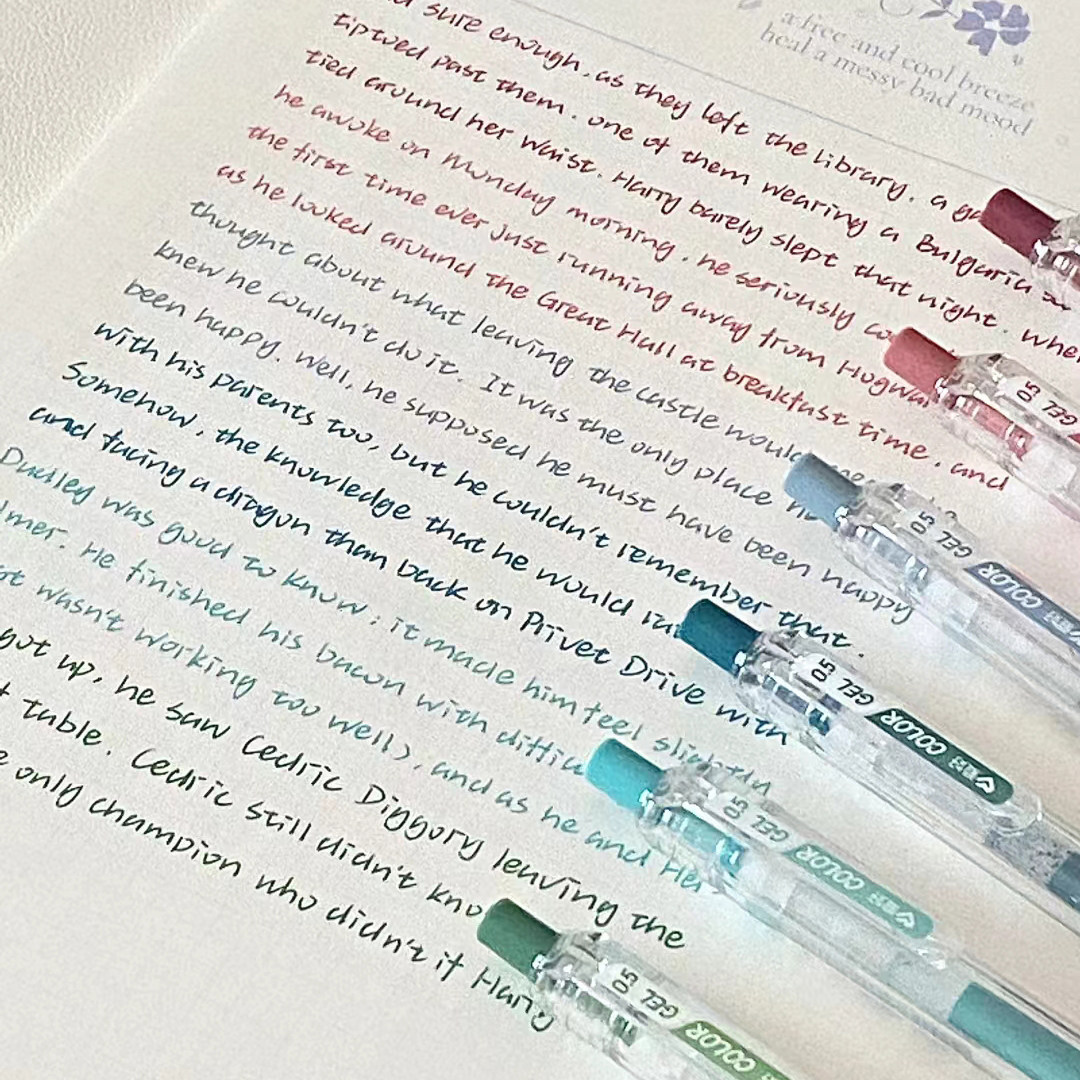 a free and cool breeze
heal a messy bad mood
sure enough, as they left the library, a
tiptoed past them, one of them wearing a Bulgaria
tied around her waist. Harry barely slept that night. When
he awoke on Monday morning, he seriously
the first time ever just running away from Hogwar
as he looked around the Great Hall at breakfast time, and
thought about what leaving the castle would
knew he couldn't do it. It was the only place he
been happy. Well, he supposed he must have been happy
with his parents too, but he couldn't remember that.
Somehow, the knowledge that he would
and facing a dragon than back on Privet Drive with
Dudley was good to know; it made him feel slightly
lmer. He finished his bacon with difficu
ot wasn't working too well), and as he and Her
got up, he saw Cedric Diggory leaving the
table. Cedric still didn't kno
e only champion who didn't if Harry
GEL 05
GEL 05 COLOR
GEL 05 COLOR
GEL 05 COLOR
GEL 05 COLOR